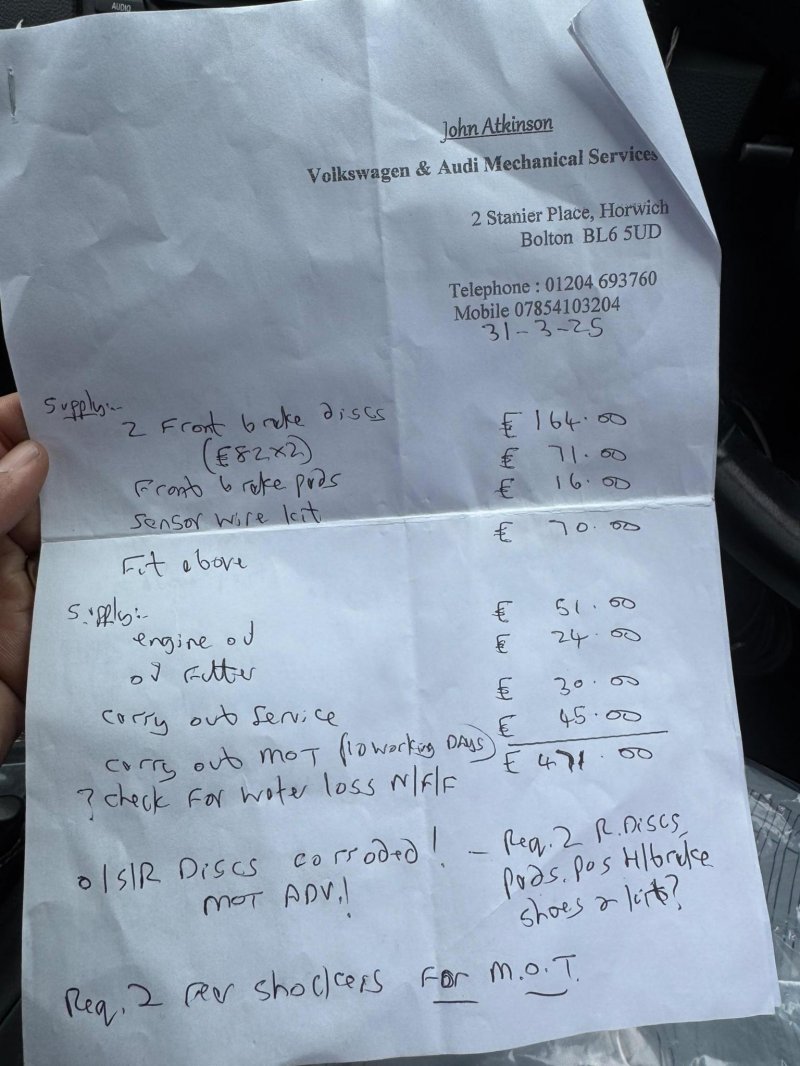 AUDIO
John Atkinson
Volkswagen & Audi Mechanical Services
2 Stanier Place, Horwich
Bolton BL6 5UD
Telephone : 01204 693760
Mobile 07854103204
31-3-25
Supply:-
2 Front brake discs £ 164.00
(£82x2)
Front brake pads £ 71.00
Sensor wire kit £ 16.00
Fit above £ 70.00
Supply:-
engine oil £ 51.00
oil Filter £ 24.00
carry out service £ 30.00
carry out MOT (10 working DAYS) £ 45.00
£ 471.00
? check For water loss N/F/F
O/S/R Discs corroded! – Req. 2 R. Discs,
MOT ADV.! pads. pos H/brake
shoes & kit?
Req. 2 rear shockers For M.O.T.